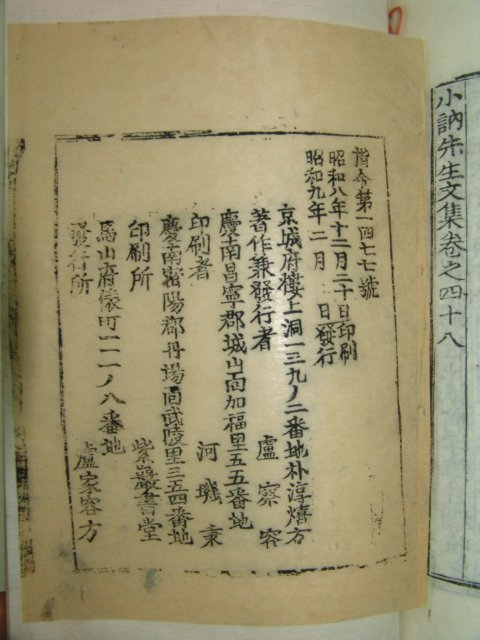 小訥先生文集卷之四十八
許令第一四七七號
昭和八年十二月二十日印刷
昭和九年二月 日發行
京城府樓上洞一三九ノ二番地朴淳熺方
著作兼發行者 盧家容
慶南昌寧郡城山面加福里五五番地
印刷者 河璣秉
慶南密陽郡丹場面武陵里三五四番地
印刷所 紫巖書堂
馬山府俵町一一一ノ八番地
發行所 盧家容方